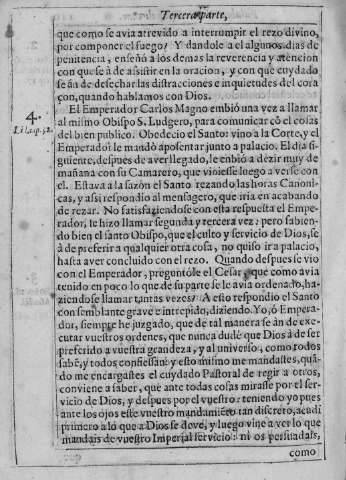 Tercera parte,
que como se avia atrevido a interrumpir el rezo divino,
por componer el fuego? Y dandole a el algunos dias de
penitencia, enseñò a los demas la reverencia y atencion
con que se à de assistir en la oracion, y con que cuydado
se àn de desechar las distracciones e inquietudes del cora
çon, quando hablamos con Dios.
4. El Emperador Carlos Magno embiò una vez a llamar
al mismo Obispo S. Ludgero, para comunicar cõ el cosas
del bien publico. Obedecio el Santo: vino a la Corte, y el
Emperador le mandò aposentar junto a palacio. El dia si-
guiente, despues de aver llegado, le enbiò a dezir muy de
mañana con su Camarero, que viniesse luego a verse con
el. Estava a la sazòn el Santo rezando las horas Canoni-
cas, y assi respondio al mensagero, que iria en acabando
de rezar. No satisfaziendose con esta respuesta el Empe-
rador, le hizo llamar segunda y tercera vez; pero sabien-
do bien el santo Obispo, que el culto y servicio de Dios, se
à de preferir a qualquier otra cosa, no quiso ir a palacio,
hasta aver concluido con el rezo. Quando despues se vio
con el Emperador, preguntòle el Cesar, que como avia
tenido en poco lo que de su parte se le avia ordenado, ha-
ziendose llamar tantas vezes? A esto respondio el Santo
con semblante grave e intrepido, diziendo. Yo, ò Empera-
dor, siempre he juzgado, que de tal manera se àn de exe-
cutar vuestros ordenes, que nunca dudè que Dios à de ser
preferido a vuestra grandeza, y al universo, como todos
sabẽ, y todos confiessan: y esto mismo me mandastes, quã-
do me encargastes el cuydado Pastoral de regir a otros,
conviene a saber, que ante todas cosas mirasse por el ser-
vicio de Dios, y despues por el vuestro: teniendo yo pues
ante los ojos este vuestro mandamiẽto tan discreto, acudi
primero a lo que a Dios se deve, y luego vine a ver lo que
mandais de vuestro Imperial servicio: ni os persuadais,
como